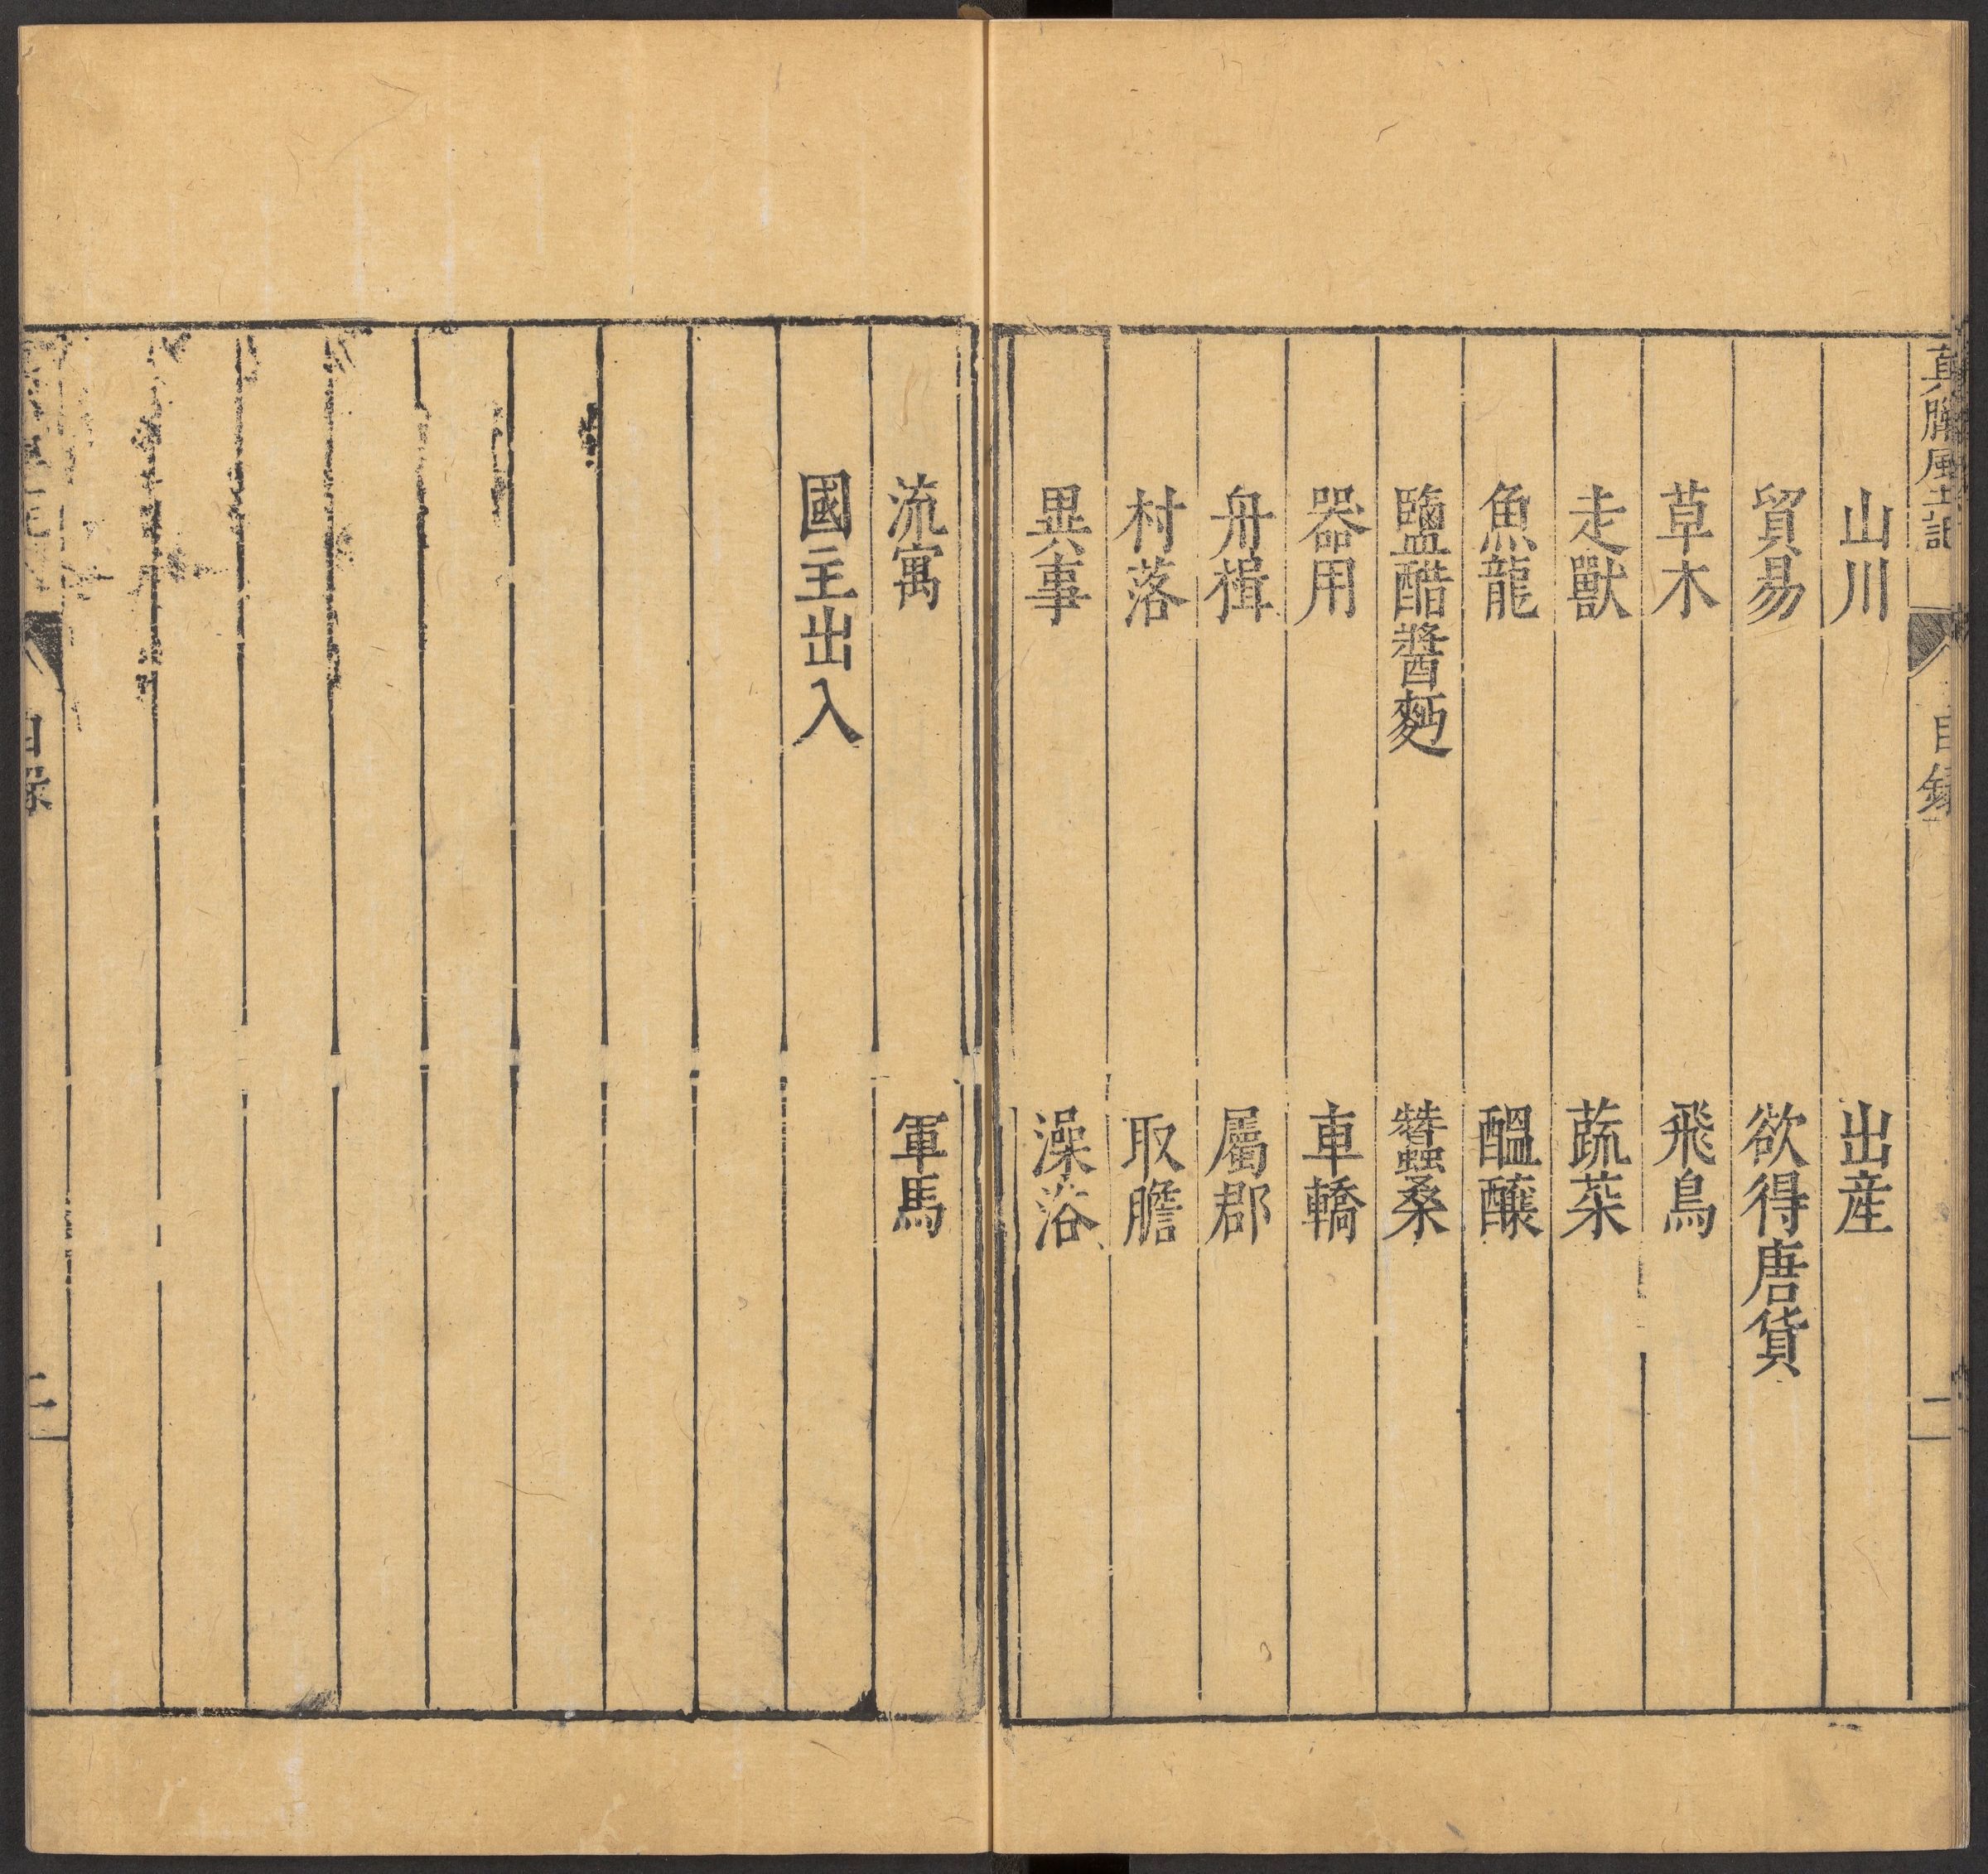 真臘風土記
目錄
二
山川　出産
貿易　欲得唐貨
草木　飛鳥
走獸　蔬菜
魚龍　醞釀
鹽醋醬麪　蠶桑
器用　車轎
舟楫　屬郡
村落　取膽
異事　澡浴
流寓　軍馬
國主出入
目錄